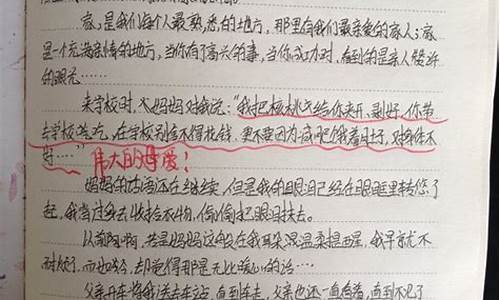 家,是我们每个人最熟悉的地方,那里有我们最亲爱的家人;家
是一个充满亲情的地方,当你有了高兴的事,当你成功时,看到的是亲人赞许
的眼光……
来学校时,妈妈对我说:"我把核桃给你夹开,剥好,你带
去学校吃,在学校别舍不得花钱,更不要因为减肥饿着肚子,对身体不
好……" 伟大的母爱!
妈妈的话还在继续,但是我的眼泪已经在眼眶里转悠了
起,我借过去收拾衣物,偷偷把眼泪抹去。
以前啊,若是妈妈这般在我耳朵旁温柔提醒,我早就不
耐烦了。而如今,却觉得那是无比暖心的话……
父亲开车将我送去车站,直到车走,父亲也还一直看着,直到不见了